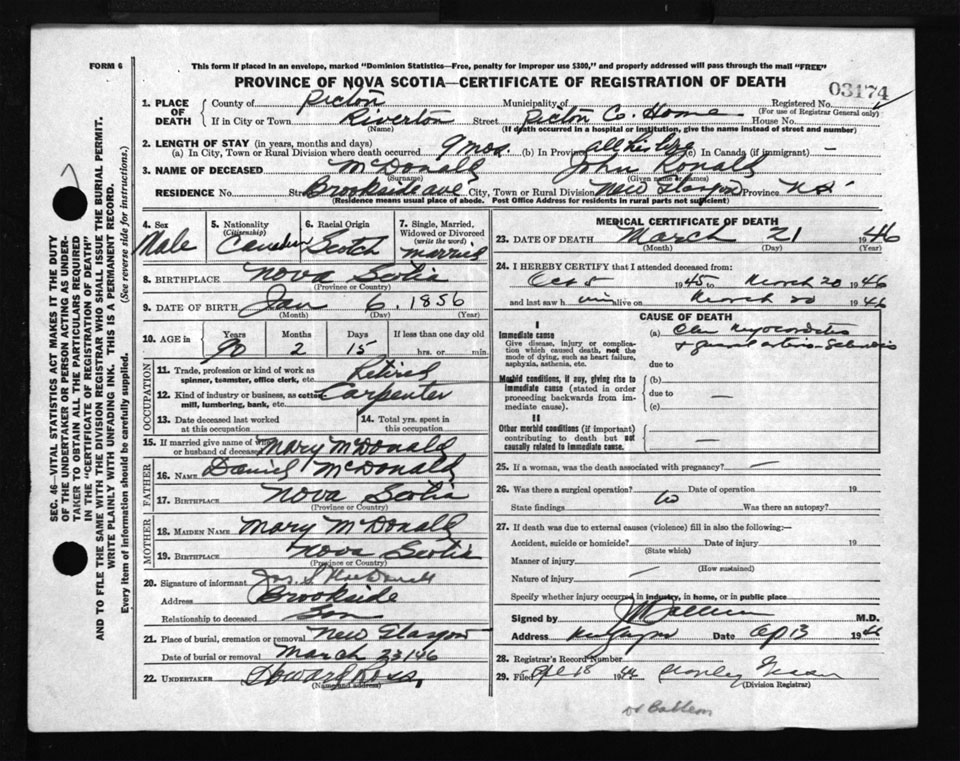 FORM 6
This form if placed in an envelope, marked "Dominion Statistics—Free, penalty for improper use $300," and properly addressed will pass through the mail "FREE"
PROVINCE OF NOVA SCOTIA—CERTIFICATE OF REGISTRATION OF DEATH
03174
1. PLACE OF DEATH
County of Pictou Municipality of Registered No.
(For use of Registrar General only)
If in City or Town Riverton Street Pictou Co. Home House No.
(Name) (If death occurred in a hospital or institution, give the name instead of street and number)
2. LENGTH OF STAY (in years, months and days)
(a) In City, Town or Rural Division where death occurred 9 mos. (b) In Province all his life (c) In Canada (if immigrant) —
3. NAME OF DECEASED McDonald John Ronald
(Surname) (Given name or names)
RESIDENCE No. Str Brookside ave City, Town or Rural Division New Glasgow Province N.S.
(Residence means usual place of abode. Post Office Address for residents in rural parts not sufficient)
4. Sex
Male
5. Nationality
(Citizenship)
Canadian
6. Racial Origin
Scotch
7. Single, Married, Widowed or Divorced
(write the word)
Married
8. BIRTHPLACE Nova Scotia
(Province or Country)
9. DATE OF BIRTH Jan 6. 1856
(Month) (Day) (Year)
10. AGE in
Years Months Days If less than one day old
90 2 15 hrs. or min.
OCCUPATION
11. Trade, profession or kind of work as
spinner, teamster, office clerk, etc. Retired
12. Kind of industry or business, as cotton
mill, lumbering, bank, etc. Carpenter
13. Date deceased last worked
at this occupation
14. Total yrs. spent in
this occupation
15. If married give name of wife
or husband of deceased Mary McDonald
FATHER
16. NAME Daniel McDonald
17. BIRTHPLACE Nova Scotia
(Province or Country)
MOTHER
18. MAIDEN NAME Mary McDonald
19. BIRTHPLACE Nova Scotia
(Province or Country)
20. Signature of informant Jas. S MacDonald
Address Brookside
Relationship to deceased Son
21. Place of burial, cremation or removal New Glasgow
Date of burial or removal March 23/46
22. UNDERTAKER Howard Ross,
(Name and address)
MEDICAL CERTIFICATE OF DEATH
23. DATE OF DEATH March 21 1946
(Month) (Day) (Year)
24. I HEREBY CERTIFY that I attended deceased from:
Oct 8 1945 to March 20 1946
and last saw him alive on March 20 1946
CAUSE OF DEATH
I
Immediate cause
Give disease, injury or complication which caused death, not the mode of dying, such as heart failure, asphyxia, asthenia, etc.
(a) Myocarditis
+ general arterio-Sclerosis
due to
Morbid conditions, if any, giving rise to immediate cause (stated in order proceeding backwards from immediate cause).
(b)
due to —
(c)
II
Other morbid conditions (if important) contributing to death but not causally related to immediate cause. —
25. If a woman, was the death associated with pregnancy? —
26. Was there a surgical operation? Date of operation 19
State findings No Was there an autopsy?
27. If death was due to external causes (violence) fill in also the following:—
Accident, suicide or homicide? Date of injury 19
(State which)
Manner of injury
(How sustained)
Nature of injury —
Specify whether injury occurred in industry, in home, or in public place
Signed by M.D.
Address New Glasgow Date Ap 13 1946
28. Registrar's Record Number
29. Filed Apl 18 1946
(Division Registrar)
SEC. 46—VITAL STATISTICS ACT MAKES IT THE DUTY
OF THE UNDERTAKER OR PERSON ACTING AS UNDER-
TAKER TO OBTAIN ALL THE PARTICULARS REQUIRED
IN THE "CERTIFICATE OF REGISTRATION OF DEATH"
AND TO FILE THE SAME WITH THE DIVISION REGISTRAR WHO SHALL ISSUE THE BURIAL PERMIT.
WRITE PLAINLY WITH UNFADING INK. THIS IS A PERMANENT RECORD.
Every item of information should be carefully supplied. (See reverse side for instructions.)